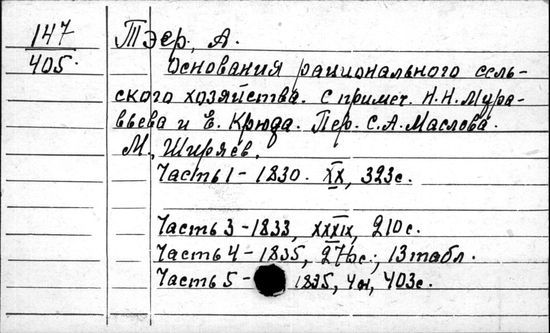 147
405.
Тэер, А.
Основания рационального сель-
ского хозяйства. С примеч. Н.Н.Мура-
вьева и Е. Крюда. Пер. С.А.Маслова.
М., Ширяев.
Часть 1 - 1830. XX, 323с.
Часть 3 - 1833, XXXIX, 210с.
Часть 4 - 1835, 276с.; 13 табл.
Часть 5 - 1835, 403с.